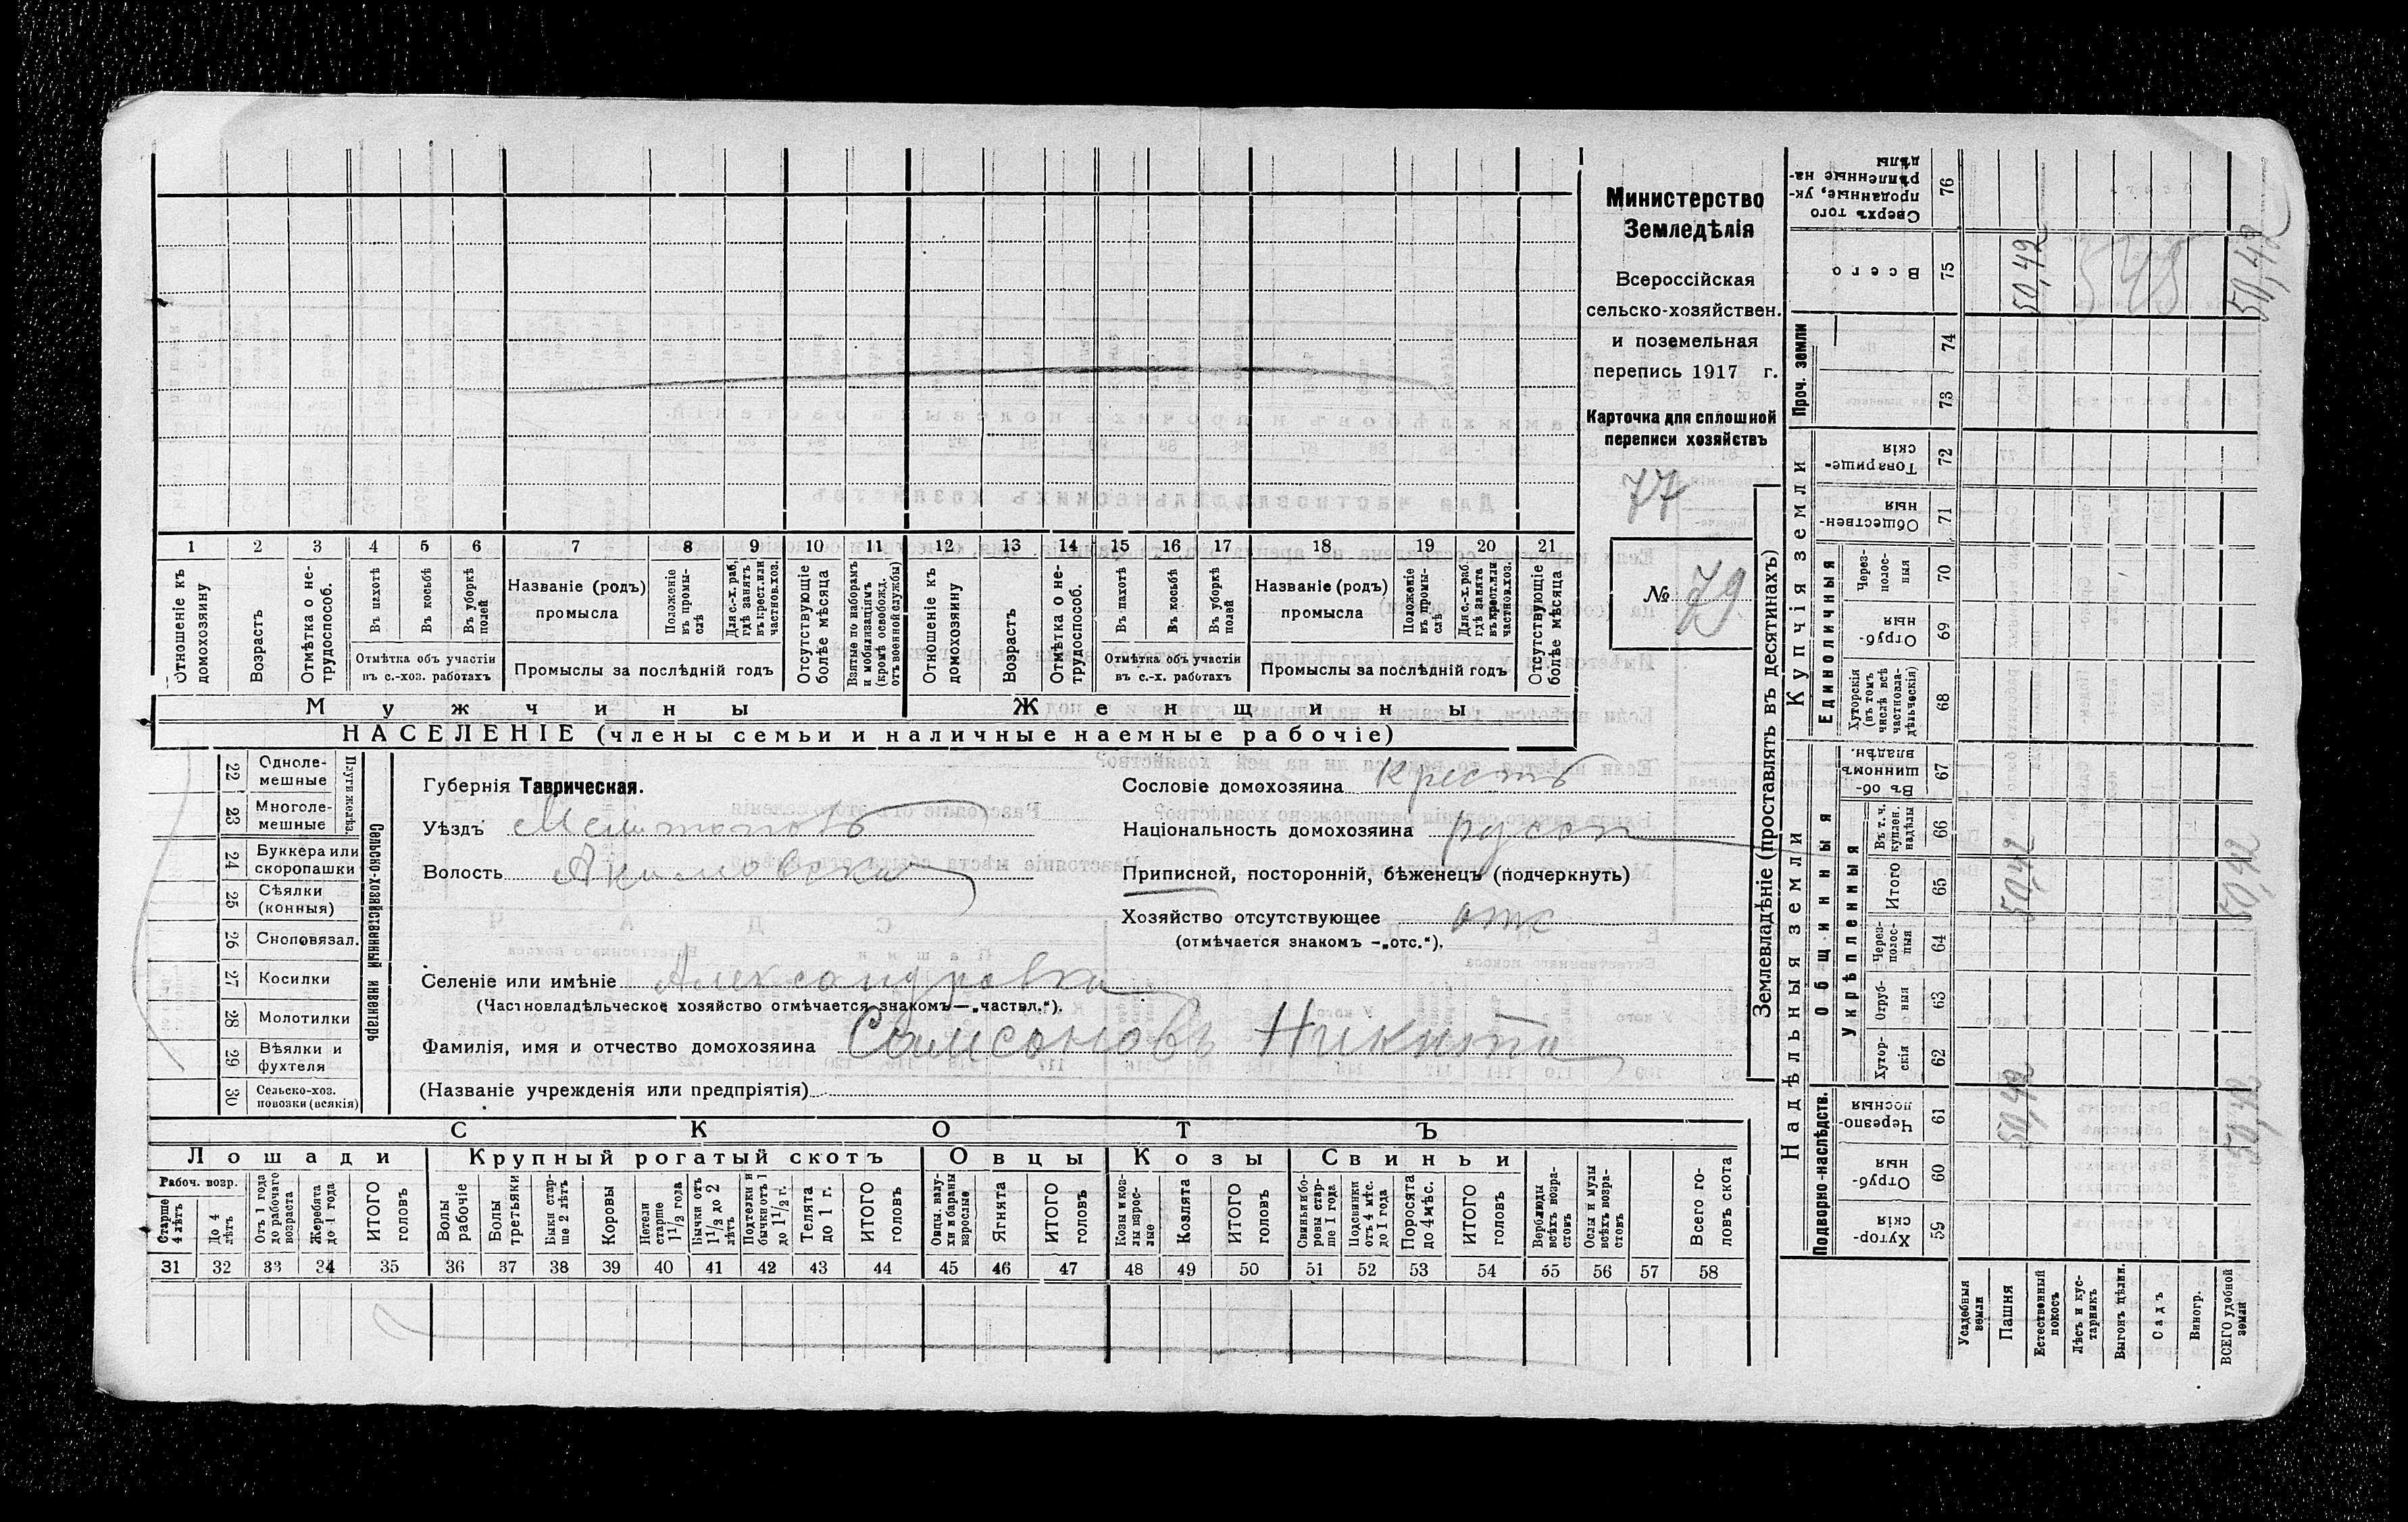 Министерство
Земледѣлія
Всероссійская
сельско-хозяйствен.
и поземельная
перепись 1917 г.
Карточка для сплошной
переписи хозяйствъ
77
№ 79
1 2 3 4 5 6 7 8 9 10 11 12 13 14 15 16 17 18 19 20 21
Отношеніе къ домохозяину
Возрастъ
Отмѣтка о не-трудоспособ.
Въ пахотѣ
Въ косьбѣ
Въ уборкѣ полей
Отмѣтка объ участіи
въ с.-хоз. работахъ
Названіе (родъ)
промысла
Положеніе въ промы-слѣ
Для с.-х. раб. гдѣ занятъ въ крест. или частнов. хоз.
Промыслы за послѣдній годъ
Отсутствующіе болѣе мѣсяца
Взятые по наборамъ и мобилизаціямъ (кромѣ освобожд. отъ военной службы)
Отношеніе къ домохозяину
Возрастъ
Отмѣтка о не-трудоспособ.
Въ пахотѣ
Въ косьбѣ
Въ уборкѣ полей
Отмѣтка объ участіи
въ с.-х. работахъ
Названіе (родъ)
промысла
Положеніе въ промы-слѣ
Для с.-х. раб. гдѣ занята въ крест. или частнов. хоз.
Промыслы за послѣдній годъ
Отсутствующіе болѣе мѣсяца
Мужчины Женщины
НАСЕЛЕНІЕ (члены семьи и наличные наемные рабочіе)
22 Одноле-мешные
23 Многоле-мешные
Плуги желѣз.
24 Буккера или скоропашки
25 Сѣялки (конныя)
26 Сноповязал.
27 Косилки
28 Молотилки
29 Вѣялки и фухтеля
30 Сельско-хоз. повозки (всякія)
Сельско-хозяйственный инвентарь
Губернія Таврическая.
Уѣздъ Мелитополь
Волость Акимовска
Сословіе домохозяина Крест
Національность домохозяина русск
Приписной, посторонній, бѣженецъ (подчеркнуть)
Хозяйство отсутствующее отс
(отмѣчается знакомъ —„отс.“).
Селеніе или имѣніе Александровка
(Частновладѣльческое хозяйство отмѣчается знакомъ—„частвл.“).
Фамилія, имя и отчество домохозяина Самсоновъ Никита
(Названіе учрежденія или предпріятія)
СКОТЪ
Лошади Крупный рогатый скотъ Овцы Козы Свиньи
Рабоч. возр.
Старше 4 лѣтъ
До 4 лѣтъ
Отъ 1 года до рабочаго возраста
Жеребята до 1 года
ИТОГО головъ
Волы рабочіе
Волы третьяки
Быки стар-ше 2 лѣтъ
Коровы
Нетели старше 1 1/2 года
Бычки отъ 1 1/2 до 2 лѣтъ
Подтелки и бычки отъ 1 до 1 1/2 г.
Телята до 1 г.
ИТОГО головъ
Овцы, валу-хи и бараны взрослые
Ягнята
ИТОГО головъ
Козы и коз-лы взрос-лые
Козлята
ИТОГО головъ
Свиньи и бо-ровы стар-ше 1 года
Подсвинки отъ 4 мѣс. до 1 года
Поросята до 4 мѣс.
ИТОГО головъ
Верблюды всѣхъ возра-стовъ
Ослы и мулы всѣхъ возра-стовъ
Всего го-ловъ скота
31 32 33 34 35 36 37 38 39 40 41 42 43 44 45 46 47 48 49 50 51 52 53 54 55 56 57 58
Землевладѣніе (проставлять въ десятинахъ)
Надѣльныя земли
Купчія земли
Проч. земли
Подворно-наслѣдств.
Общинныя
Укрѣпленныя
Единоличныя
Сверхъ того проданные, ук-рѣпленные на-дѣлы 76
Всего 75 50,42 548 50,42
74
73
Товарище-скія 72
Обществен-ныя 71
Через-полос-ныя 70
Отруб-ныя 69
Хуторскія (въ томъ числѣ всѣ частновла-дѣльческія) 68
Въ об-щинномъ владѣн. 67
Въ т. ч. куплен. надѣлы 66
Итого 65 50,42 50,42
Через-полос-ныя 64
Отруб-ныя 63
Хутор-скія 62
Черезпо-лосныя 61 50,42 50,42
Отруб-ныя 60
Хутор-скія 59
Усадебныя земли
Пашня
Естественный покосъ
Лѣсъ и кус-тарникъ
Выгонъ цѣлин.
Садъ
Виногр.
ВСЕГО удобной земли